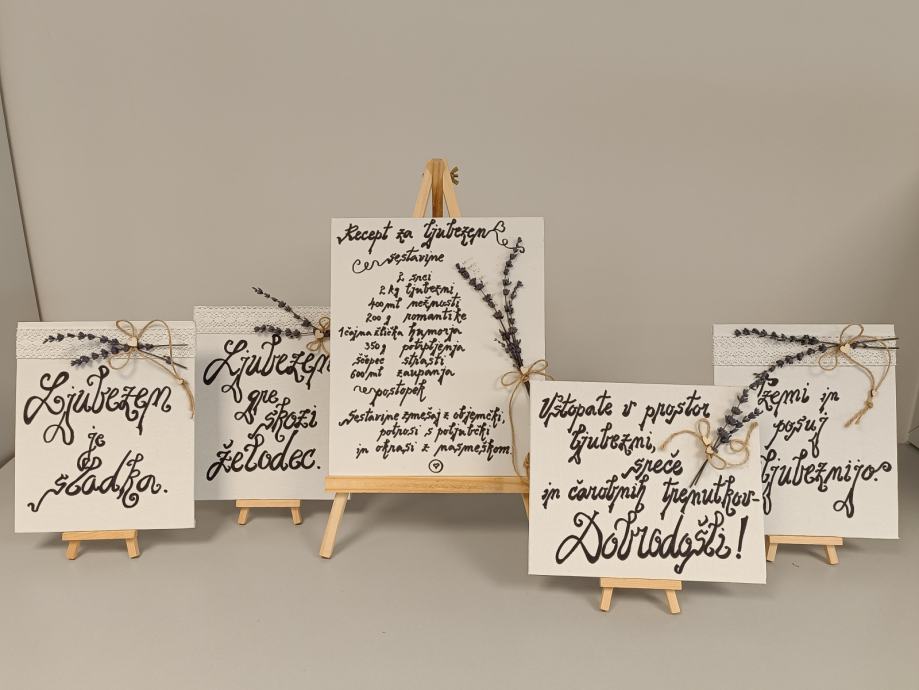 Ljubezen
je
sladka.
Ljubezen
gre
skozi
želodec.
Recept za ljubezen
sestavine
2 srci
2 kg ljubezni
400ml nežnosti
200 g romantike
1čajna žlička humorja
350g potrpljenja
ščepec strasti
600ml zaupanja
postopek
Sestavine zmešaj z objemčki,
potrosi s poljubčki
in okrasi z nasmeškom.
Vstopate v prostor
ljubezni,
sreče
in čarobnih trenutkov.
Dobrodošli!
Vzemi in
posuj
z ljubeznijo.